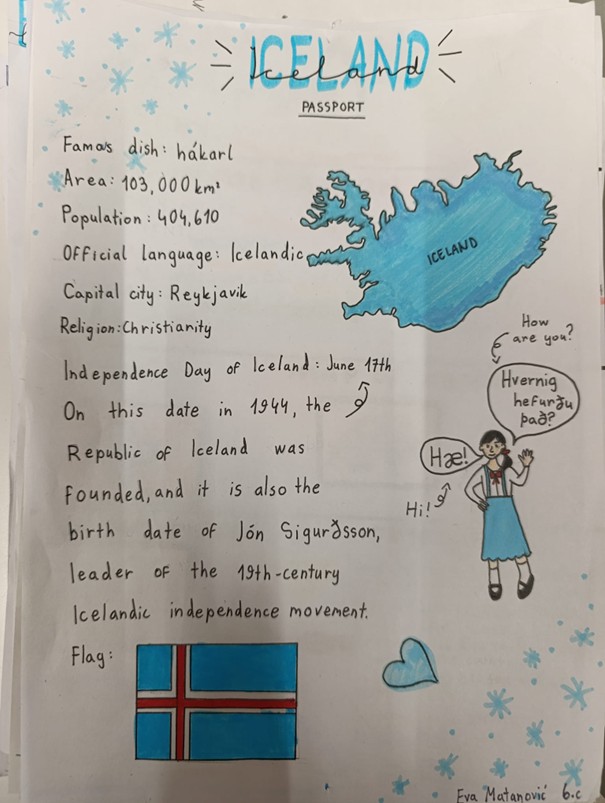 ICELAND
Iceland
PASSPORT
Famas dish: hákarl
Area: 103,000 km²
Population: 404,610
Official language: Icelandic
Capital city: Reykjavik
Religion: Christianity
Independence Day of Iceland: June 17th
On this date in 1944, the
Republic of Iceland was
founded, and it is also the
birth date of Jón Sigurðsson,
leader of the 19th-century
Icelandic independence movement.
Flag:
ICELAND
How
are you?
Hvernig
hefurðu
það?
Hæ!
Hi!
Eva Matanović 6.c